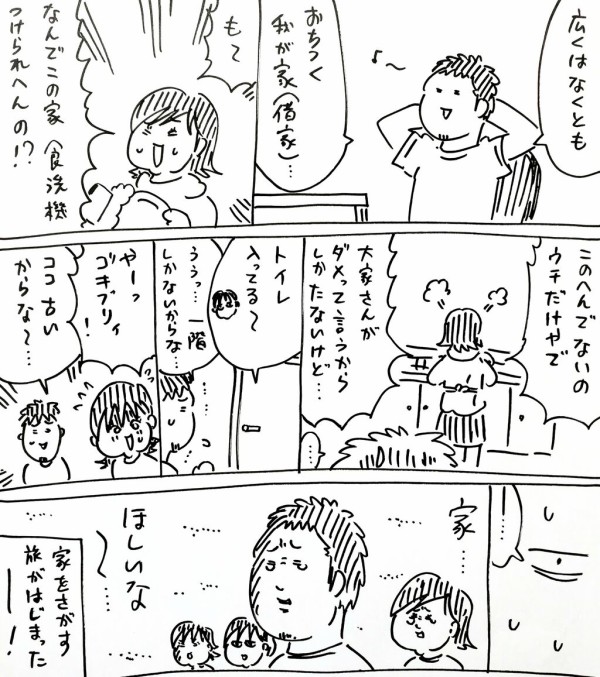 広くはなくとも
♪〜
おちつく
我が家(借家)…
も〜
なんでこの家 食洗機
つけられへんの!?
このへんでないの
ウチだけやで
大家さんが
ダメって言うから
しかたないけど…
…
トイレ
入ってる〜
ううっ…一階
しかないからな…
やーっ
ゴキブリィ
!
ココ古い
からな〜…
…
家…
ほしいな
〜…
家をさがす
旅がはじまった
ー!